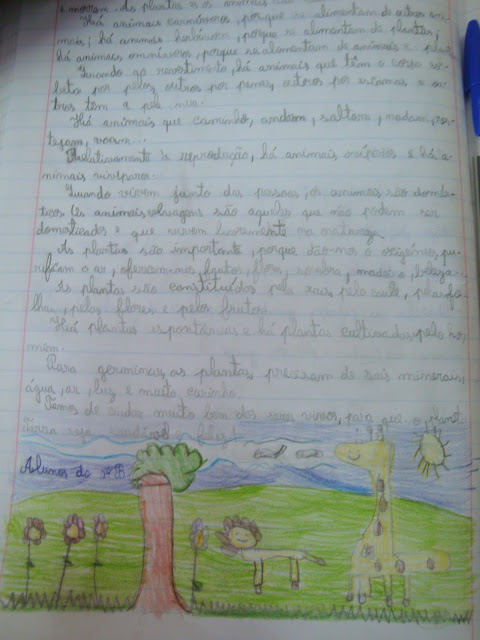 e morram. As plantas e os animais
Há animais carnívoros, porque se alimentam de outros ani-
mais; há animais herbívoros, porque se alimentam de plantas;
há animais omnívoros, porque se alimentam de animais e plan
Quando ao revestimento, há animais que têm o corpo co-
berto por pelos, outros por penas, outros por escamas e ou-
tros têm a pele nua.
Há animais que caminham, andam, saltam, nadam, ras-
tejam, voam...
Relativamente à reprodução, há animais ovíparos e há a-
nimais vivíparos.
Quando vivem junto das pessoas, os animais são domés-
ticos. Os animais selvagens são aqueles que não podem ser
domesticados e que vivem livremente na natureza.
As plantas são importante, porque dão-nos o oxigénio, pu-
rificam o ar, oferecem-nos frutos, flores, sombra, madeira, beleza...
As plantas são constituídas pela raiz, pelo caule, pelas fo-
lhas, pelas flores e pelos frutos.
Há plantas espontâneas e há plantas cultivadas pelo ho-
mem.
Para germinar, as plantas precisam de sais minerais,
água, ar, luz e muito carinho.
Temos de cuidar muito bem dos seres vivos, para que o planet
Terra seja saudável e feliz!
Alunos do 2º B